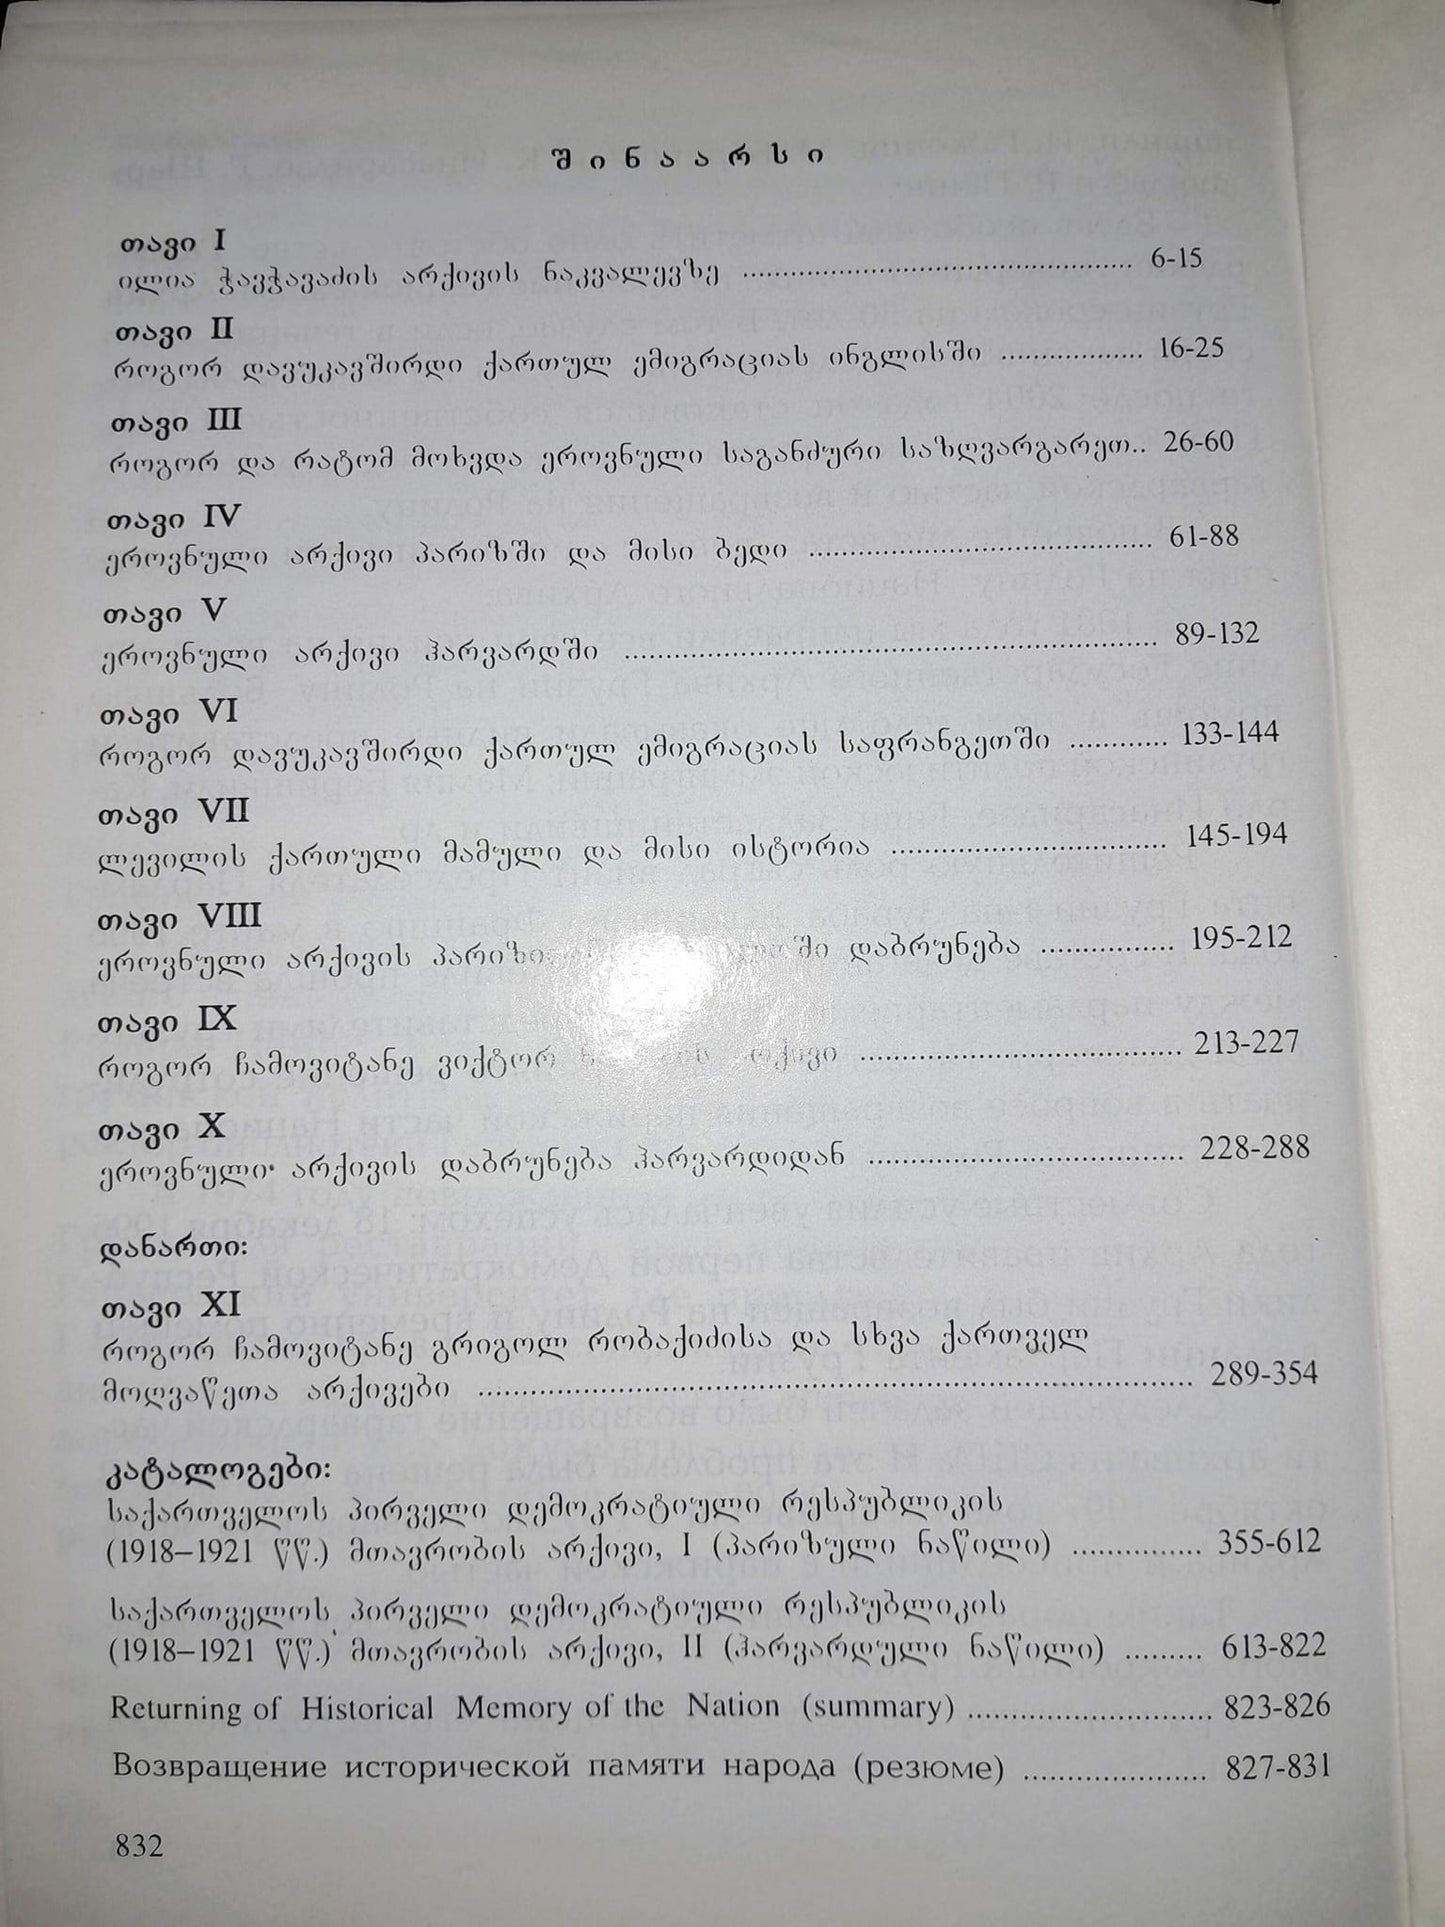 შინაარსი
თავი I
ილია ჭავჭავაძის არქივის ნაკვალევზე ................................................ 6-15
თავი II
როგორ დავუკავშირდი ქართულ ემიგრაციას ინგლისში .................. 16-25
თავი III
როგორ და რატომ მოხვდა ეროვნული საგანძური საზღვარგარეთ.. 26-60
თავი IV
ეროვნული არქივი პარიზში და მისი ბედი ........................................... 61-88
თავი V
ეროვნული არქივი ჰარვარდში .................................................................. 89-132
თავი VI
როგორ დავუკავშირდი ქართულ ემიგრაციას საფრანგეთში ............ 133-144
თავი VII
ლევილის ქართული მამული და მისი ისტორია .................................. 145-194
თავი VIII
ეროვნული არქივის დაბრუნება ................ 195-212
თავი IX
როგორ ჩამოვიტანე ვიქტორ ........................................ 213-227
თავი X
ეროვნული არქივის დაბრუნება ჰარვარდიდან ...................................... 228-288
დანართი:
თავი XI
როგორ ჩამოვიტანე გრიგოლ რობაქიძისა და სხვა ქართველ
მოღვაწეთა არქივები ...................................................................................... 289-354
კატალოგები:
საქართველოს პირველი დემოკრატიული რესპუბლიკის
(1918–1921 წწ.) მთავრობის არქივი, I (პარიზული ნაწილი) ............... 355-612
საქართველოს პირველი დემოკრატიული რესპუბლიკის
(1918–1921 წწ.) მთავრობის არქივი, II (ჰარვარდული ნაწილი) ......... 613-822
Returning of Historical Memory of the Nation (summary) ............................ 823-826
Возвращение исторической памяти народа (резюме) ...................... 827-831
832